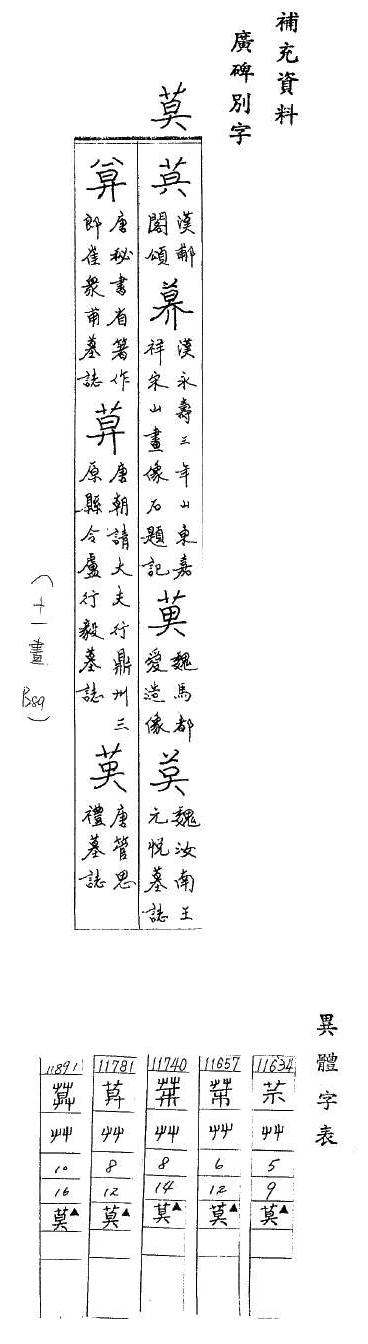 補充資料
廣碑別字
莫
莫 漢郙閣頌
漢永壽三年山東嘉祥宋山畫像石題記
魏馬都愛造像
莫 魏汝南王元悅墓誌
唐秘書省著作郎崔眾甫墓誌
唐朝請大夫行鼎州三原縣令盧行毅墓誌
唐管思禮墓誌
(十一畫 B89)
異體字表
11634 艸 5 9 莫▲
11657 艸 6 12 莫▲
11740 艸 8 14 莫▲
11781 艸 8 12 莫▲
11891 艸 10 16 莫▲